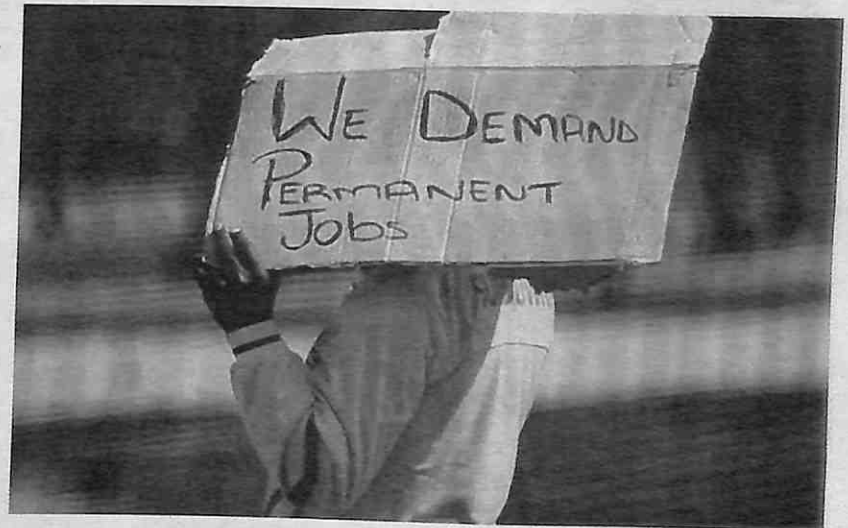 WE DEMAND
PERMANENT
JObs